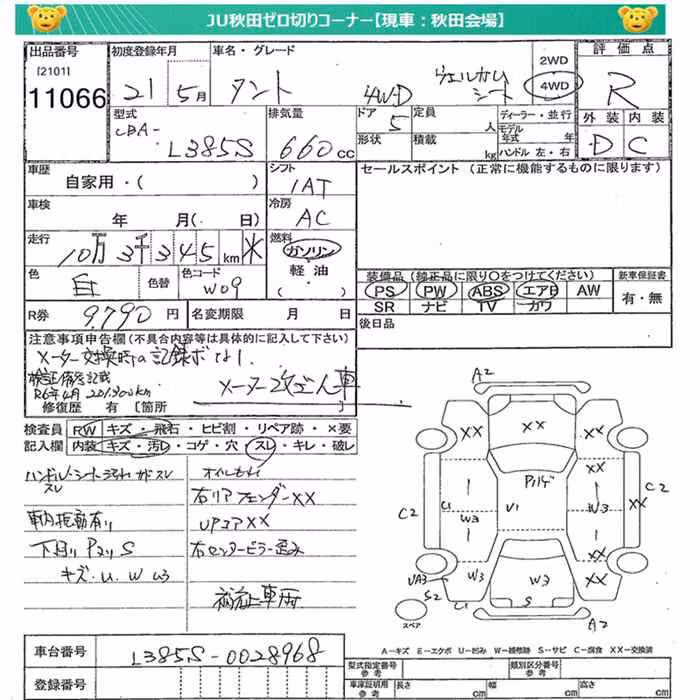 JU秋田ゼロ切りコーナー【現車：秋田会場】
出品番号 初度登録年月 車名・グレード 2WD 評価点
[2101]
11066 21 5月 タント 4WD ウェルカムシート 4WD R
型式 排気量 ドア 定員 ディーラー・並行 外装 内装
CBA- L385S 660cc 5 人 モデル年式 年 D C
形状 積載 kg ハンドル 左・右
車歴 シフト セールスポイント (正常に機能するものに限ります)
自家用・( ) IAT
車検 冷房
年 月( 日) AC
走行 燃料
10万3千345km ※ ガソリン
軽油
・( )
色 色替 色コード 装備品 (純正品に限り○をつけてください) 新車保証書
白 W09 PS PW ABS エアB AW 有・無
SR ナビ TV カワ
R券 9,790円 名変期限 月 日 後日品
注意事項申告欄 (不具合内容等は具体的に記入して下さい)
メーター交換時の記録ボなし
R6年4月 201,300km メーター改ざん車
修復歴 有 [箇所 ]
検査員 RW キズ・飛石・ヒビ割・リペア跡・×要
記入欄 内装 キズ・汚レ・コゲ・穴 スレ・キレ・破レ
ハンドル・シート汚れ キズ スレ オイルもれ
スレ 右リアフェンダーXX
車内 UPコアXX
下廻り P S 右センターピラー歪み
キズ・U・W W3
A2
XX XX XX
XX
C2 C1 W3 U1 W3 XX C2
XX
UA3 W3 W3 XX
S2 C1 S A2
スペア
A－キズ E－エクボ U－凹み W－補修跡 S－サビ C－腐食 XX－交換済
車台番号 L385S-0028968 型式指定番号 参考 類別区分番号 参考
登録番号 車庫証明用 参考 長さ cm 幅 cm 高さ cm